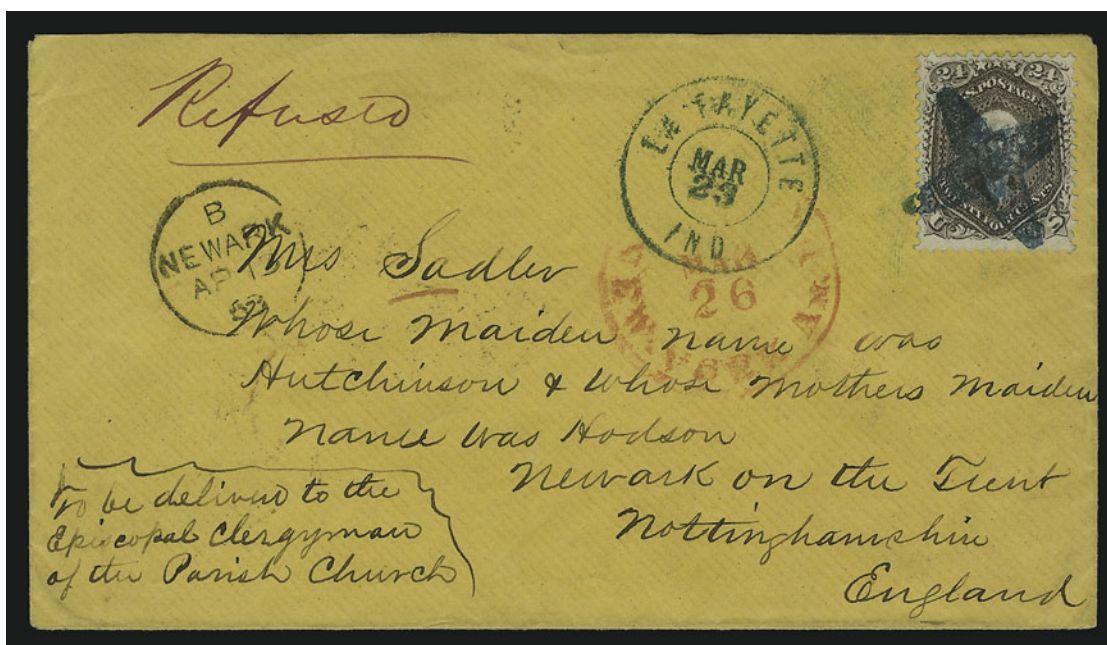 Refused
LA FAYETTE
MAR
23
IND
24 24
U.S. POSTAGE
TWENTY FOUR CENTS
U S
B
NEWARK
AP
NEW YORK AM. PKT
MAR
26
Mrs Sadler
Whose maiden name was
Hutchinson & whose Mothers maiden
name was Hodson
Newark on the Trent
Nottinghamshire
England
To be deliverd to the
Episcopal Clergyman
of the Parish Church